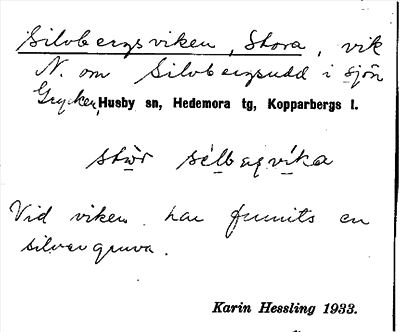 Silvbergsviken, Stora, vik
N. om Silvbergsudd i sjön
Grycken, Husby sn, Hedemora tg, Kopparbergs l.
stòr sélbagvika
Vid viken har funnits en
silvergruva.
Karin Hessling 1933.